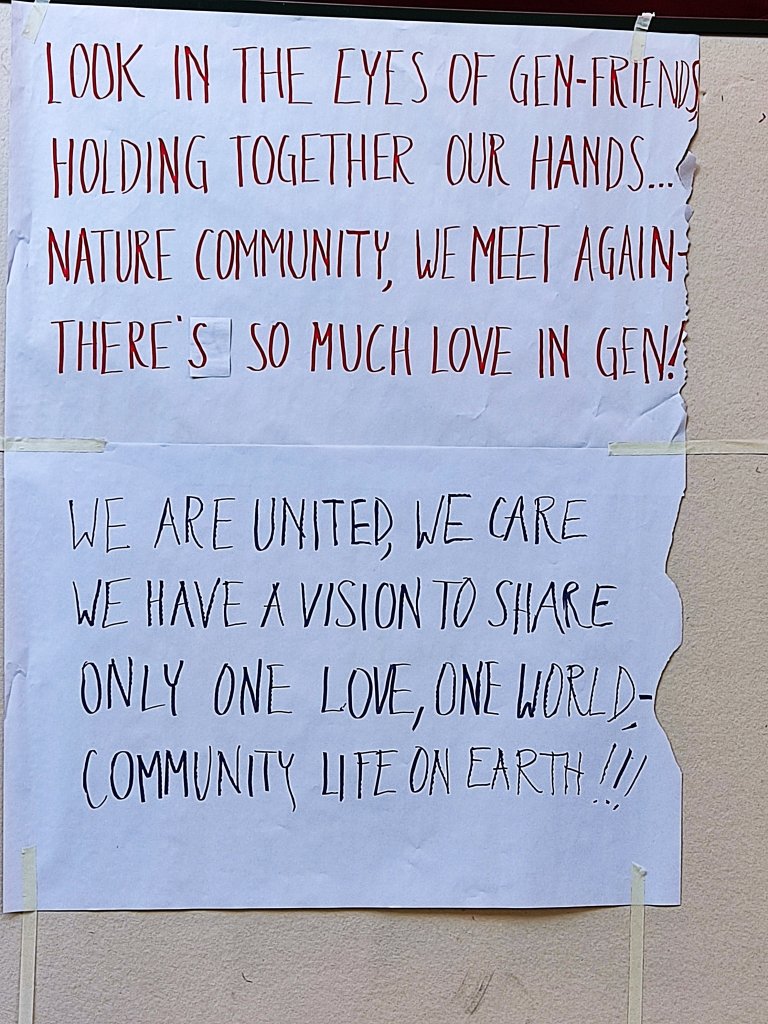 LOOK IN THE EYES OF GEN-FRIENDS,
HOLDING TOGETHER OUR HANDS...
NATURE COMMUNITY, WE MEET AGAIN-
THERE'S SO MUCH LOVE IN GEN!
WE ARE UNITED, WE CARE
WE HAVE A VISION TO SHARE
ONLY ONE LOVE, ONE WORLD,-
COMMUNITY LIFE ON EARTH!!!